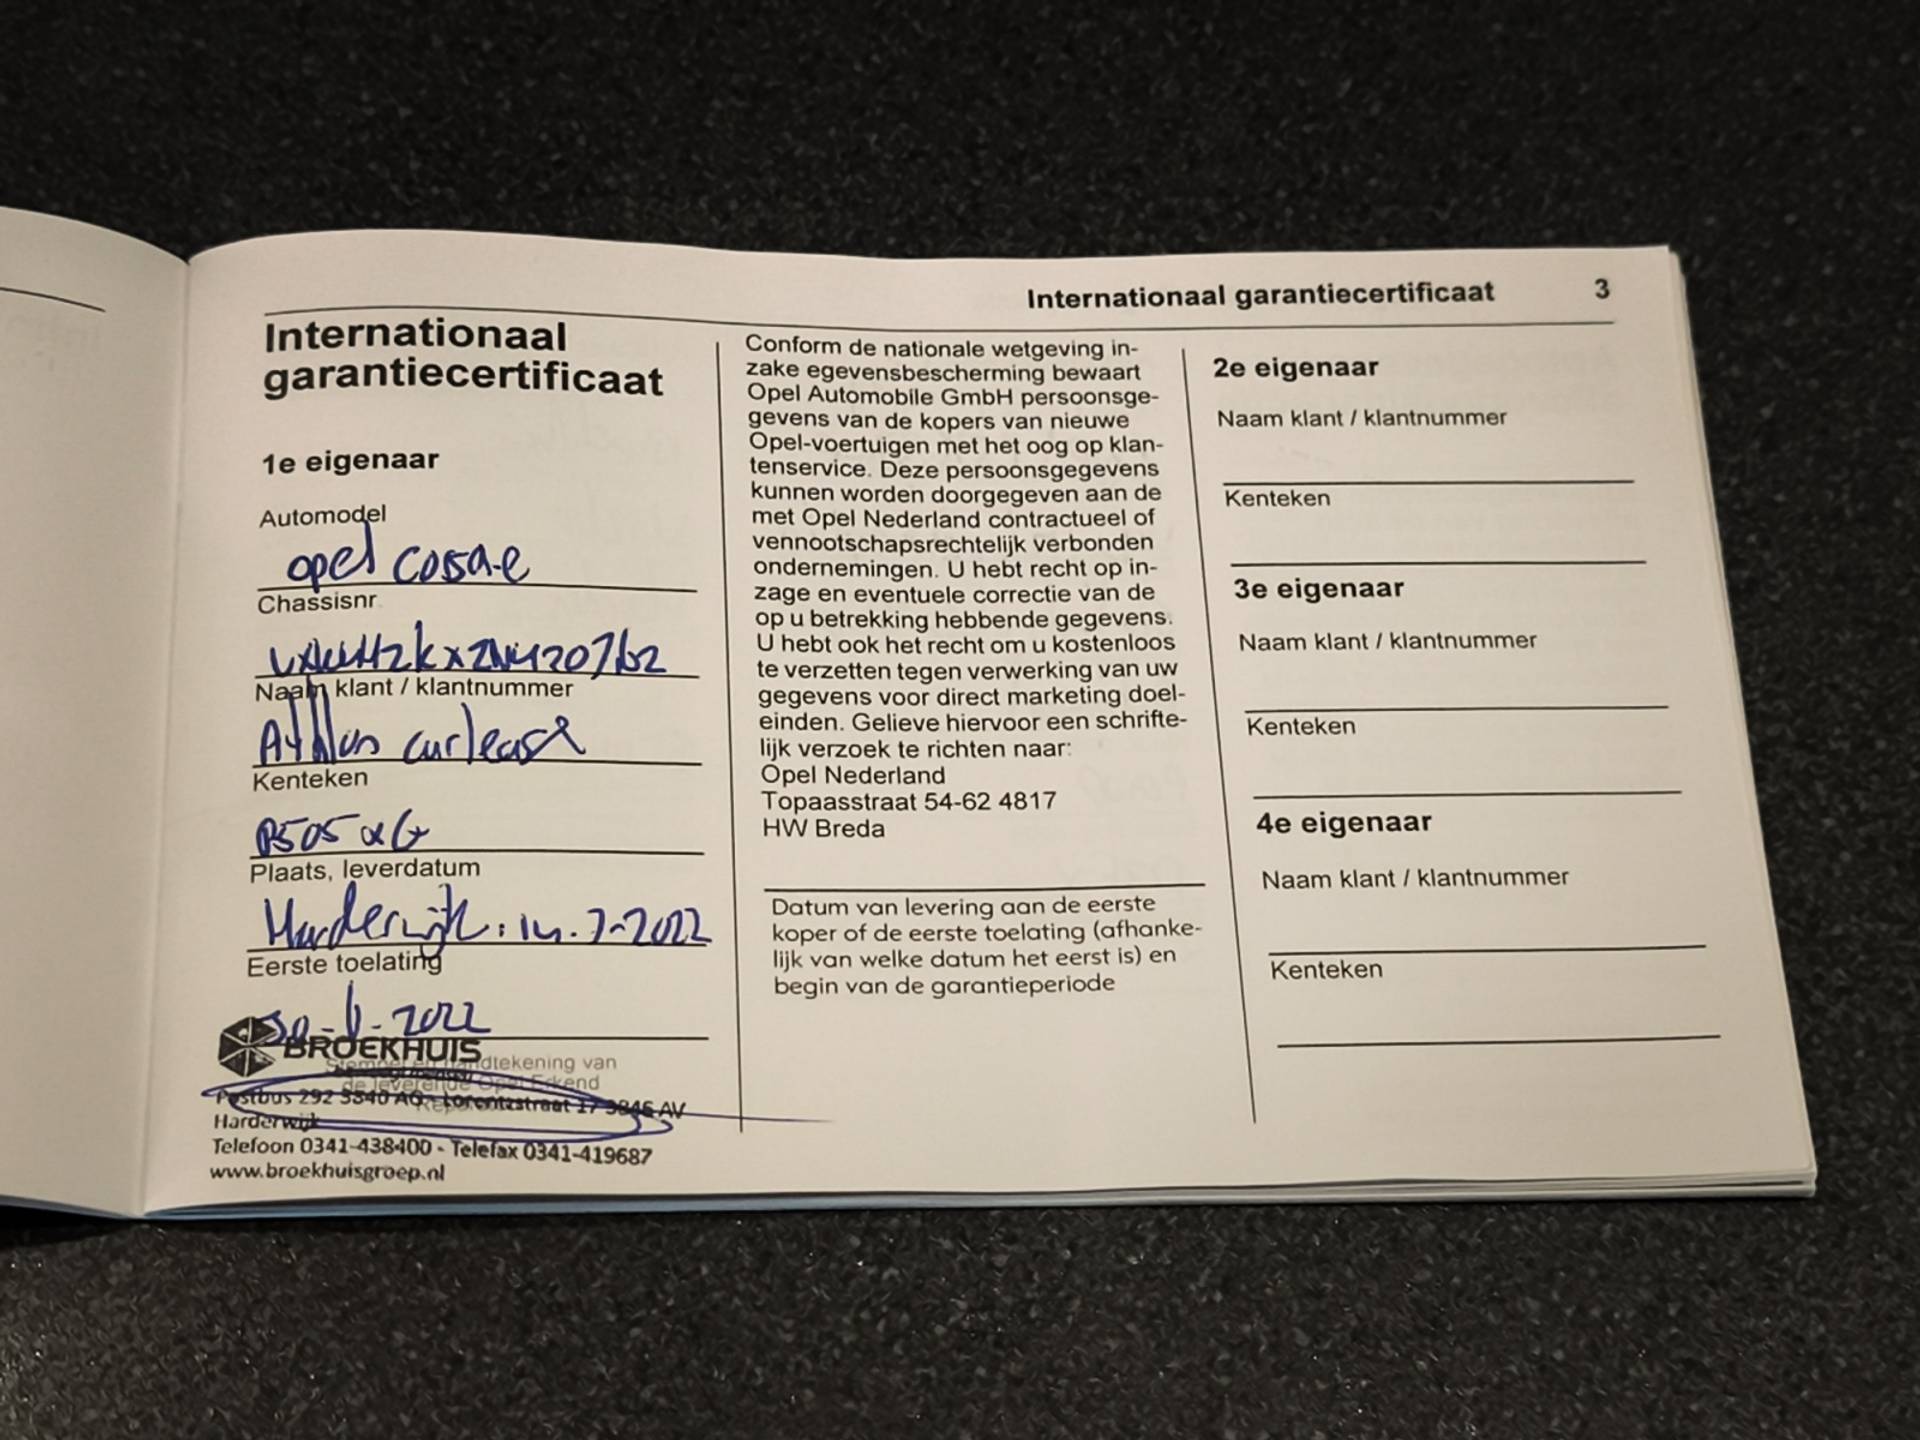 Internationaal garantiecertificaat 3
Internationaal
garantiecertificaat
1e eigenaar
Automodel
opel corsa-e
Chassisnr.
Naam klant / klantnummer
Athlon carlease
Kenteken
Plaats, leverdatum
Harderwijk. 14.7-2022
Eerste toelating
30-6-2022
BROEKHUIS
Stempel en handtekening van
de leverende Opel Erkend
Postbus 292 3840 AG - Lorentzstraat 17 3846 AV
Harderwijk
Telefoon 0341-438400 - Telefax 0341-419687
www.broekhuisgroep.nl
Conform de nationale wetgeving in-
zake egevensbescherming bewaart
Opel Automobile GmbH persoonsge-
gevens van de kopers van nieuwe
Opel-voertuigen met het oog op klan-
tenservice. Deze persoonsgegevens
kunnen worden doorgegeven aan de
met Opel Nederland contractueel of
vennootschapsrechtelijk verbonden
ondernemingen. U hebt recht op in-
zage en eventuele correctie van de
op u betrekking hebbende gegevens.
U hebt ook het recht om u kostenloos
te verzetten tegen verwerking van uw
gegevens voor direct marketing doel-
einden. Gelieve hiervoor een schrifte-
lijk verzoek te richten naar:
Opel Nederland
Topaasstraat 54-62 4817
HW Breda
Datum van levering aan de eerste
koper of de eerste toelating (afhanke-
lijk van welke datum het eerst is) en
begin van de garantieperiode
2e eigenaar
Naam klant / klantnummer
Kenteken
3e eigenaar
Naam klant / klantnummer
Kenteken
4e eigenaar
Naam klant / klantnummer
Kenteken